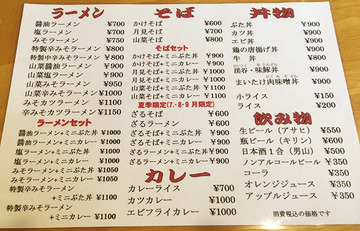 ラーメン
醤油ラーメン ¥700
塩ラーメン ¥700
みそラーメン ¥750
特製辛みそラーメン ¥800
山菜醤油ラーメン ¥900
山菜塩ラーメン ¥900
山菜みそラーメン ¥950
山菜辛みそラーメン ¥1000
みそカツラーメン ¥1100
辛みそカツラーメン ¥1150
ラーメンセット
醤油ラーメン+ミニぶた丼 ¥1000
醤油ラーメン+ミニカレー ¥1000
塩ラーメン+ミニぶた丼 ¥1000
塩ラーメン+ミニカレー ¥1000
みそラーメン+ミニぶた丼 ¥1050
みそラーメン+ミニカレー ¥1050
特製辛みそラーメン
+ミニぶた丼 ¥1100
特製辛みそラーメン
+ミニカレー ¥1100
そば
かけそば ¥600
月見そば ¥700
山菜そば ¥800
そばセット
かけそば+ミニぶた丼 ¥900
かけそば+ミニカレー ¥900
月見そば+ミニぶた丼 ¥1000
月見そば+ミニカレー ¥1000
山菜そば+ミニぶた丼 ¥1100
山菜そば+ミニカレー ¥1100
夏季限定(7・8・9月限定)
ざるそば
ざるラーメン
ざるそば+ミニぶた丼
ざるそば+ミニカレー
ざるラーメン+ミニぶた丼
ざるラーメン+ミニカレー ¥1000
カレー
カレーライス ¥700
カツカレー ¥1000
エビフライカレー ¥1000
丼物
ぶた丼 ¥900
カツ丼 ¥900
エビ丼 ¥900
鶏の唐揚げ丼 ¥900
牛丼 ¥800
渓谷・味豚丼 ¥900
まいたけ肉味噌丼 ¥900
小ライス ¥150
ライス ¥200
飲み物
生ビール(アサヒ) ¥550
瓶ビール(キリン) ¥600
日本酒1合(男山) ¥500
ノンアルコールビール ¥350
コーラ ¥350
オレンジジュース ¥350
アップルジュース ¥350
消費税込の価格です